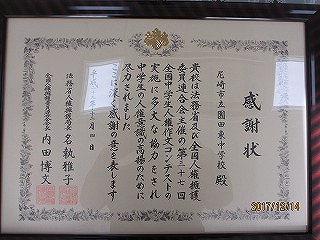 感謝状
尼崎市立園田東中学校 殿
貴校は法務省及び全国人権擁護
委員連合会主催の第三十七回
全国中学生人権作文コンテストの
実施に多大な協力をされ
中学生の人権意識の高揚のために
尽力されました
深く感謝の意を表します
平成 年 月 日
法務省人権擁護局長 名執雅子
全国人権擁護委員連合会長 内田博文
2017/12/14